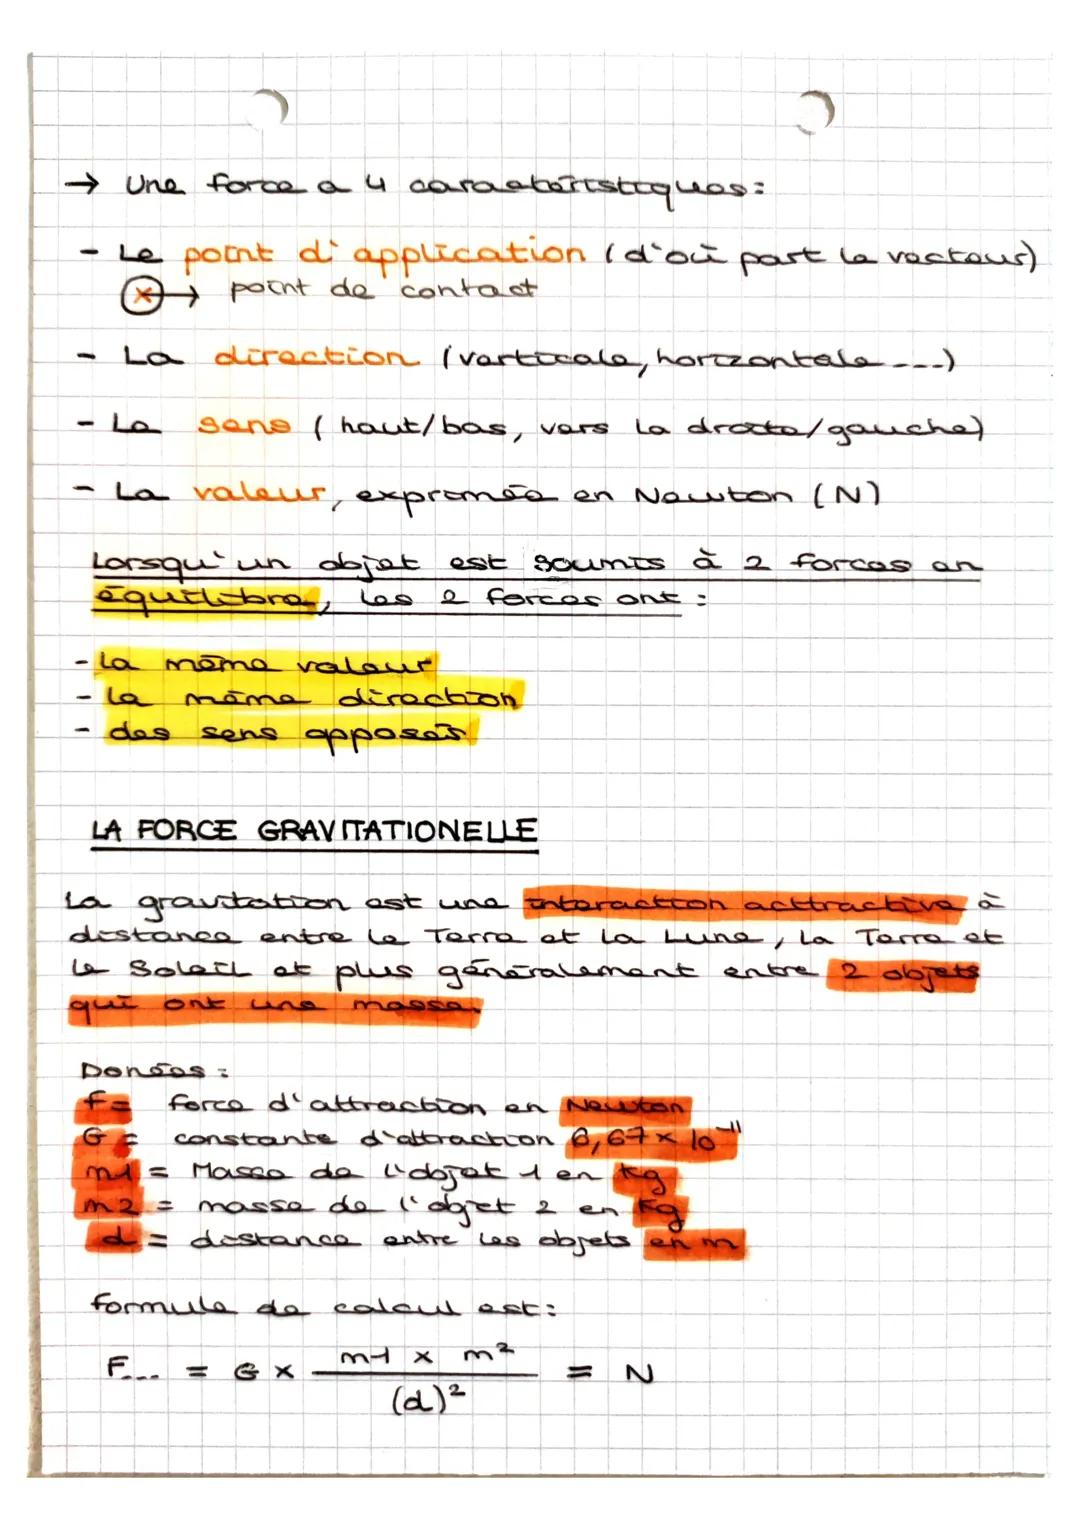 → Une force a 4 caractéristiques:
- Le point d'application (d'où part le vecteur)
x→ point de contact
- La direction (verticale, horizontale ....)
- Le sens (haut/bas, vers la droite/gauche)
- La valeur, exprimée en Newton (N)
Lorsqu'un objet est soumis à 2 forces en
équilibre, les 2 forces ont :
- la même valeur
- la même direction
- des sens opposés
LA FORCE GRAVITATIONELLE
La gravitation est une interaction acttractive à
distance entre la Terre et la Lune, la Terre et
le Soleil et plus généralement entre 2 objets
qui ont une masse.
Donées :
F = force d'attraction en Newton
G = constante d'attraction 6,67 × 10⁻¹¹
m1 = Masse de l'objet 1 en kg
m2 = masse de l'objet 2 en kg
d = distance entre les objets en m
formule de calcul est:
F... = G × m1 × m² / (d)² = N